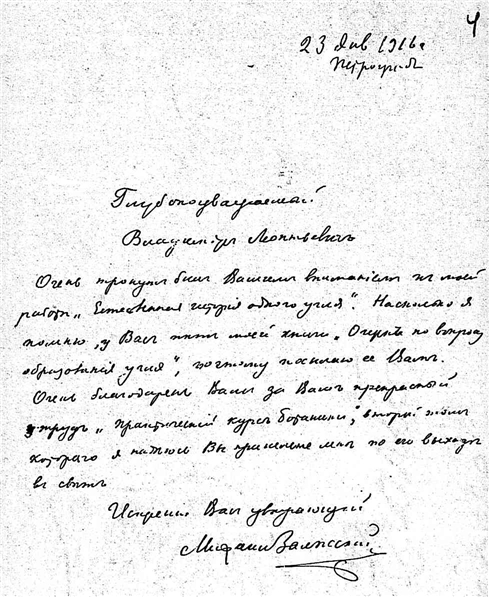 4
23 Янв 1916 г
Петроград
Глубокоуважаемый
Владиміръ Леонтьевичъ
Очень тронутъ былъ Вашимъ вниманіемъ къ моей
работѣ „Естественная исторія одного угля“. Насколько я
помню, у Васъ нѣтъ моей книги „Очеркъ по вопросу
образованія угля“, поэтому посылаю ее Вамъ.
Очень благодаренъ Вамъ за Вашъ прекрасный
трудъ „Практическій курсъ ботаники“, второй томъ
котораго я надѣюсь Вы пришлете мнѣ по его выходѣ
въ свѣтъ
Искренно Васъ уважающій
Залѣсскій